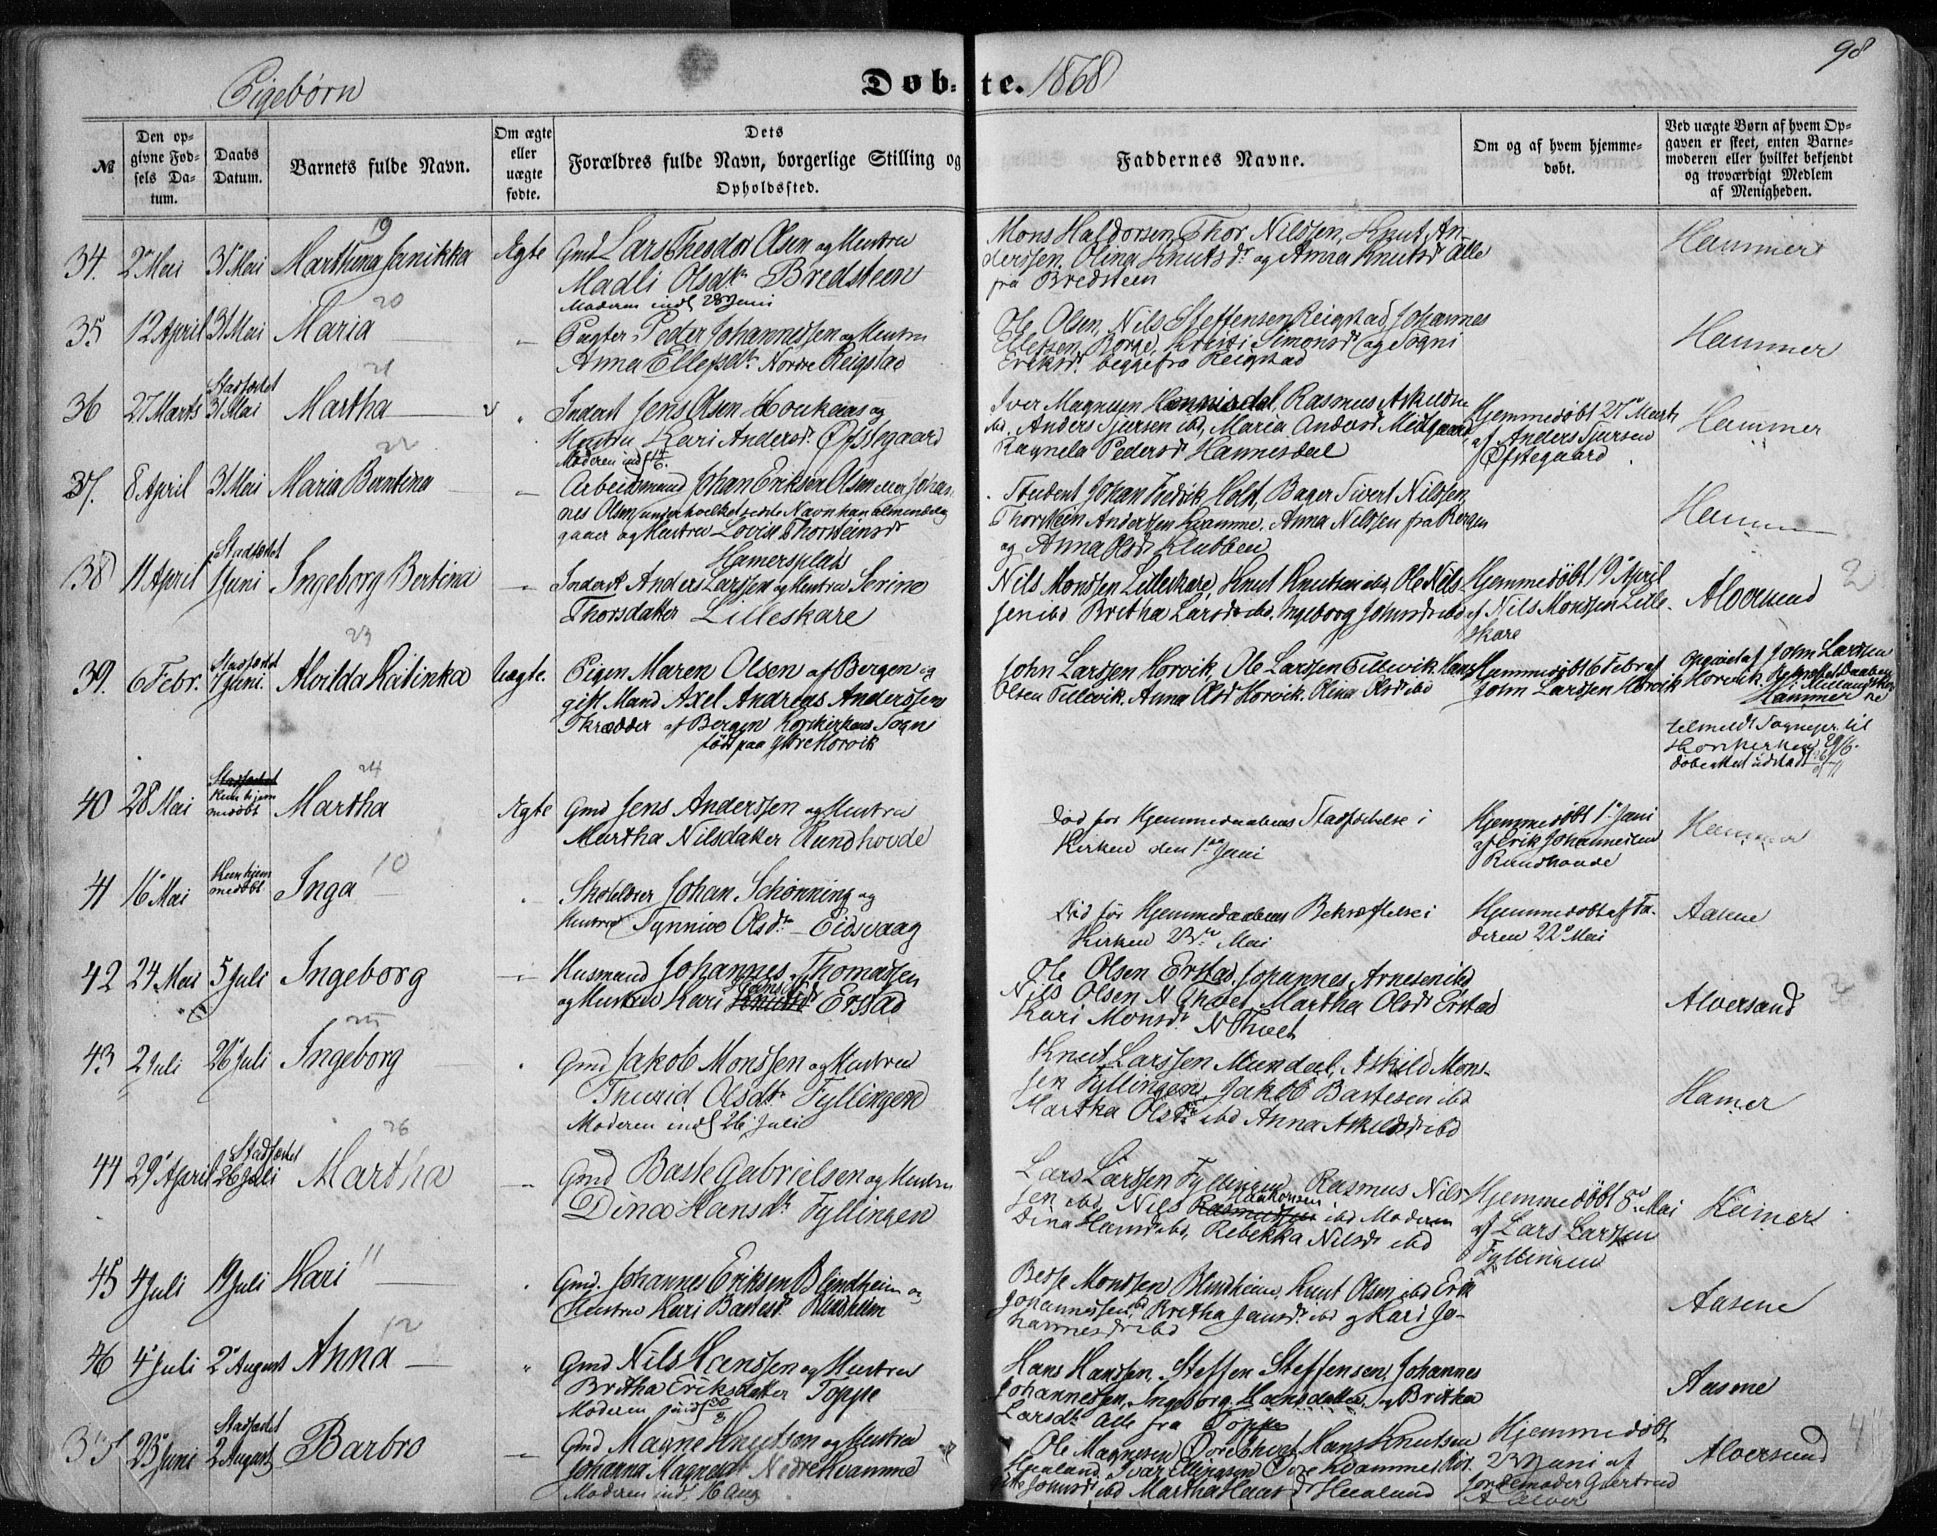 98
Pigebørn
Døb-te. 1868
№
Den op-
givne Fød-
sels Da-
tum.
Daabs
Datum.
Barnets fulde Navn.
Om ægte
eller
uægte
fødte.
Dets
Forældres fulde Navn, borgerlige Stilling og
Opholdssted.
Faddernes Navne.
Om og af hvem hjemme-
døbt.
Ved uægte Børn af hvem Op-
gaven er skeet, enten Barne-
moderen eller hvilket bekjendt
og troværdigt Medlem
af Menigheden.
19
34. 2 Mai 31 Mai Marthina Janikka Ægte Gmd Lars Theodor Olsen og Hustru
Madli Olsdtr Bredsteen
Moderen indl 28 Juni
Mons Haldorsen, Thor Nilssen, Knut An-
derssen, Olina Knutsdr og Anna Knutsdr Alle
fra Bredsteen
Hammer
20
35 12 April 31 Mai Maria
Pagter Peder Johannessen og Hustru
Anna Ellefsdtr Nordre Reigstad
Ole Olsen, Nils Steffensen Reigstad, Johannes
Ellefsen Borge, Kristi Simonsdr og Sogni
Eriksdr begge fra Reigstad
Hammer
21
36 27 Marts Stadfæstet
31 Mai Martha
Inderst Jens Olsen Houkaas og
Hustru Kari Andersdr Øfstegaard
Moderen indl 14/6.
Iver Magnesen Hannisdal, Rasmus Askildsen
ibd, Anders Sjursen ibd, Maria Andersdr Midtgaard
Ragnela Pedersdr Hannisdal
Hjemmedøbt 27 Marts
af Anders Sjursen
Øfstegaard
Hammer
22
37. 8 April 31 Mai Maria Berntina
Arbeidsmand Johan Eriksen Olsen eller Johan-
nes Olsen, under hvilket sidste Navn han almindelig
gaaer og Hustru Lovise Thorsteinsdr
Hamersplads
Student Johan Fredrik Holst, Bager Sivert Nilssen
Thorstein Anderssen Kvamme, Anna Nilssen fra Bergen
og Anna Olsdr Klubben
Hammer
38 11 April Stadfæstet
1 Juni Ingeborg Bertina
Inderst Anders Larssen og Hustru Serine
Thorsdatter Lilleskare
Nils Monssen Lilleskare, Knut Knutsen ibd, Ole Nils-
sen ibd Britha Larsdr ibd. Ingeborg Johnsdr ibd
Hjemmedøbt 19 April
af Nils Monssen Lille-
skare
Alversund 2
23
39. 6 Febr. Stadfæstet
1 Juni. Alvilda Katinka Uægte. Pigen Maren Olsen af Bergen og
gift Mand Axel Andreas Anderssen
Skrædder af Bergen Korskirkens Sogn
født paa Ytre Horvik
John Larssen Horvik, Ole Larssen Tellevik, Hans
Olsen Tellevik. Anna Olsdr Horvik. Olina Olsdr ibd
Hjemmedøbt 6 Febr af
John Larssen Horvik
Opgivet af John Larssen
Horvik.
Hammer
tilmeldt Sognepr. til
Korskirken 29/6.
Døbeattest udstedt
24
40 28 Mai Stadfæstet
Kun hjem-
medøbt Martha Ægte Gmd Jens Anderssen og Hustru
Martha Nilsdatter Rundhovde
Død før Hjemmedaabens Stadfæstelse i
Kirken den 1ste Juni
Hjemmedøbt 1 Juni
af Erik Johannessen
Rundhovde
Hammer
41 16 Mai Kun hjem-
medøbt Inga 10
Skolelærer Johan Schønning og
Hustru Synnive Olsdr Eidsvaag
Død før Hjemmedaabens Bekræftelse i
Kirken 23de Mai
Hjemmedøbt af Fa-
deren 22 Mai
Aasene
42 24 Mai 5 Juli Ingeborg
Husmand Johannes Thomassen
og Hustru Kari Erstad
Ole Olsen Erstad, Johannes Arnesen ibd
Nils Olsen N Thvet Martha Olsdr Erstad
Kari Monsdr N Thvet
Alversund 3
25
43 2 Juli 26 Juli Ingeborg
Gmd Jakob Monssen og Hustru
Thurid Olsdtr Fyllingen
Moderen indl 26 Juli
Knut Larssen Mundal, Askild Mons-
sen Fyllingen, Jakob Bastesen ibd
Martha Olsdr ibd Anna Askildsdr ibd
Hamer
26
44 29 April Stadfæstet
26 Juli Martha
Gmd Baste Gabrielsen og Hustru
Dina Hansdtr Fyllingen
Lars Larssen Fyllingen, Rasmus Nils-
sen ibd, Nils Rasmussen Haakonsen ibd Moderen
Dina Hansdr ibd, Rebekka Nilsdr ibd
Hjemmedøbt 8de Mai
af Lars Larssen
Fyllingen
Hamer
45 4 Juli 19 Juli Kari 11
Gmd. Johannes Eriksen Blindheim og
Hustru Kari Bastesdr Blindheim
Besse Monssen Blindheim, Knut Olsen ibd Erik
Johannessen ibd Britha Jansdr ibd og Kari Jo-
hannesdr ibd
Aasene
12
46 4 Juli 2 August Anna
Gmd Nils Hanssen og Hustru
Britha Eriksdatter Toppe
Moderen indl 30/8
Hans Hanssen, Steffen Steffensen, Johannes
Johannessen, Ingeborg Hansdatter og Britha
Larsdtr Alle fra Toppe
Aasene
23 Juni Stadfæstet
2 August Barbro
Gmd Magne Knutsen og Hustru
Johanna Magnesdr Nedre Kvamme
Moderen ind. 16 Aug
Ole Magnesen Øvre Thvet Hans Knutsen
Hualand, Ivar Ellingsen Øvre Kvamme,
Johnsdr ibd Martha Hansdr Hualand
Hjemmedøbt
23 Juni af
Jordemoder Gjertrud
Alver
Alversund 4